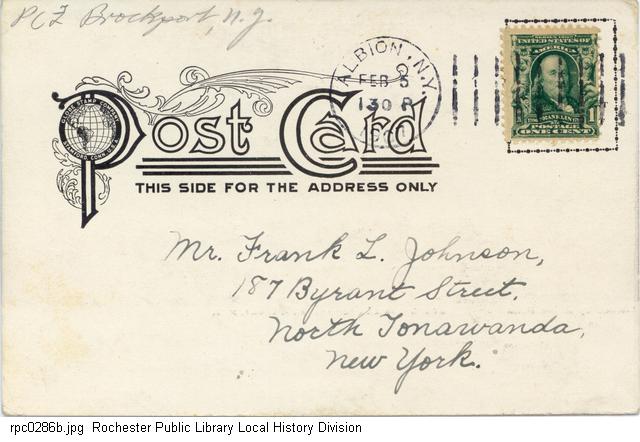 Brockport, N.Y.
ALBION, N.Y.
FEB 5
130 P
SERIES 1902
UNITED STATES OF
AMERICA
FRANKLIN
POSTAGE
1
ONE CENT
GLOBE STAMP COMPANY
Post Card
THIS SIDE FOR THE ADDRESS ONLY
Mr. Frank L. Johnson,
187 Byrant Street.
North Tonawanda,
New York.
rpc0286b.jpg Rochester Public Library Local History Division